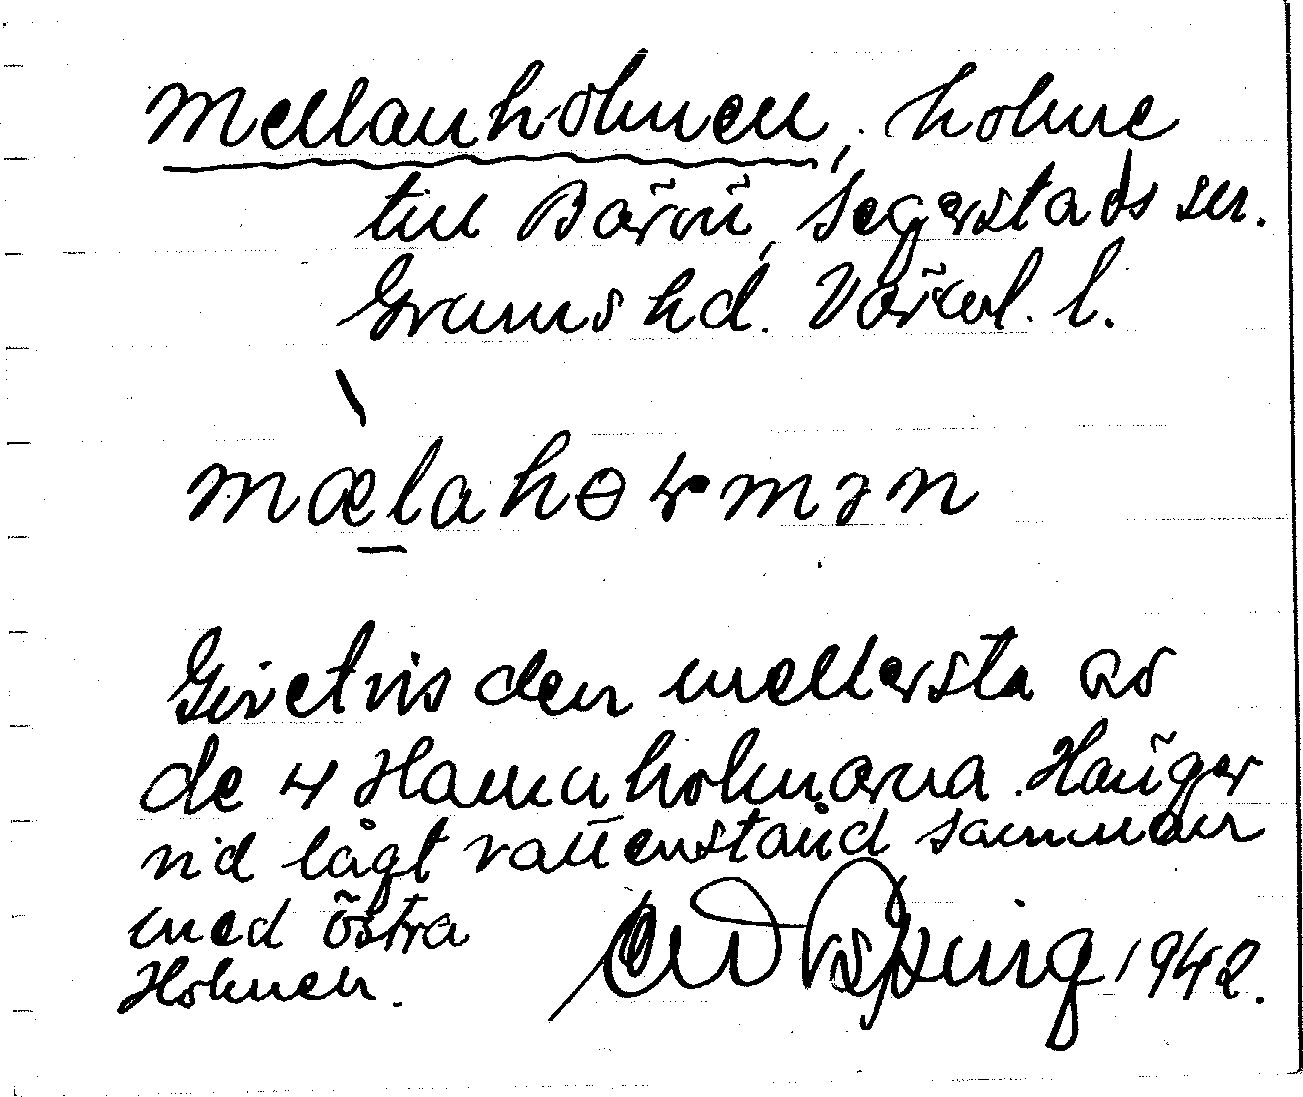 Mellanholmen, holme
till Börön, Segerstads sn.
Grums hd. Värml. l.
mælahɵɽmən
Givetvis den mellersta av
de 4 Hamnholmarna. Hänger
vid lågt vattenstånd samman
med Östra
Holmen.
1942.